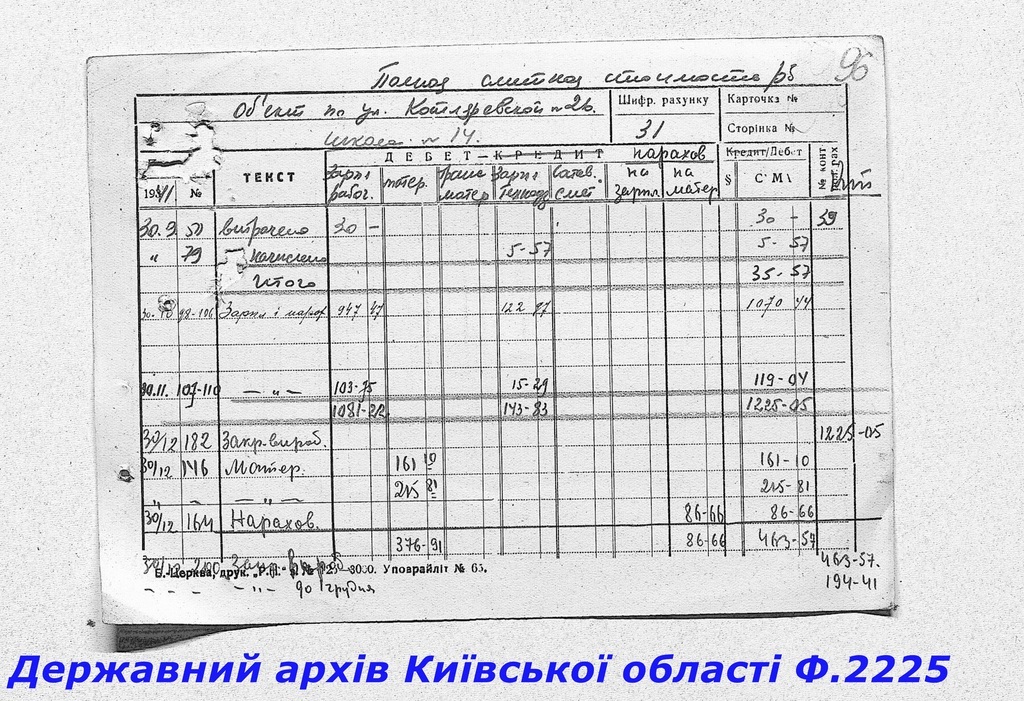 96
сметной стоимости
Об'єкт по ул. Котляревской № 26.
школа № 14.
Шифр. рахунку
31
Карточка №
Сторінка №
ДЕБЕТ—КРЕДИТ
нарахов
Кредит/Дебет
194 №
ТЕКСТ
зарпл рабоч. матер. матер зарпл смет на зарпл на матер § СМА № конт
30.9 50 витрачено 30 – 30 – 39
" 79 начислено 5-57 5-57
Итого 35-57
30.10 98-106 Зарпл і нарах 947 47 122 97 1070 44
30.11. 107-110 — " — 103-75 15-29 119-04
1081-22 143-83 1225-05
30/12 182 Закр. вироб. 1225-05
30/12 146 Матер. 161 10 161-10
" – — " — 215 81 215-81
30/12 164 Нарахов. 86-66 86-66
376-91 86-66 463-57
30/12 200 Закр. вироб 463-57.
Б.-Церква, друк. 3000. Уповрайліт № 65.
– – – – " – до грудня 194-41
Державний архів Київської області Ф.2225